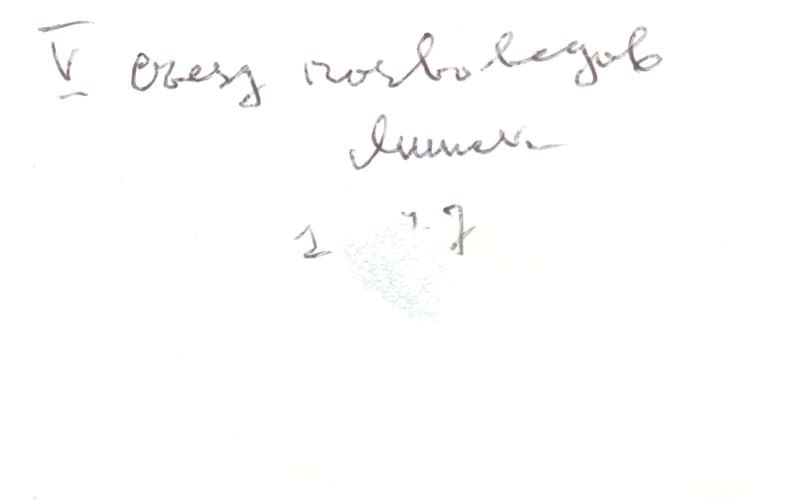 V съезд почвоведов
Минск
1 7